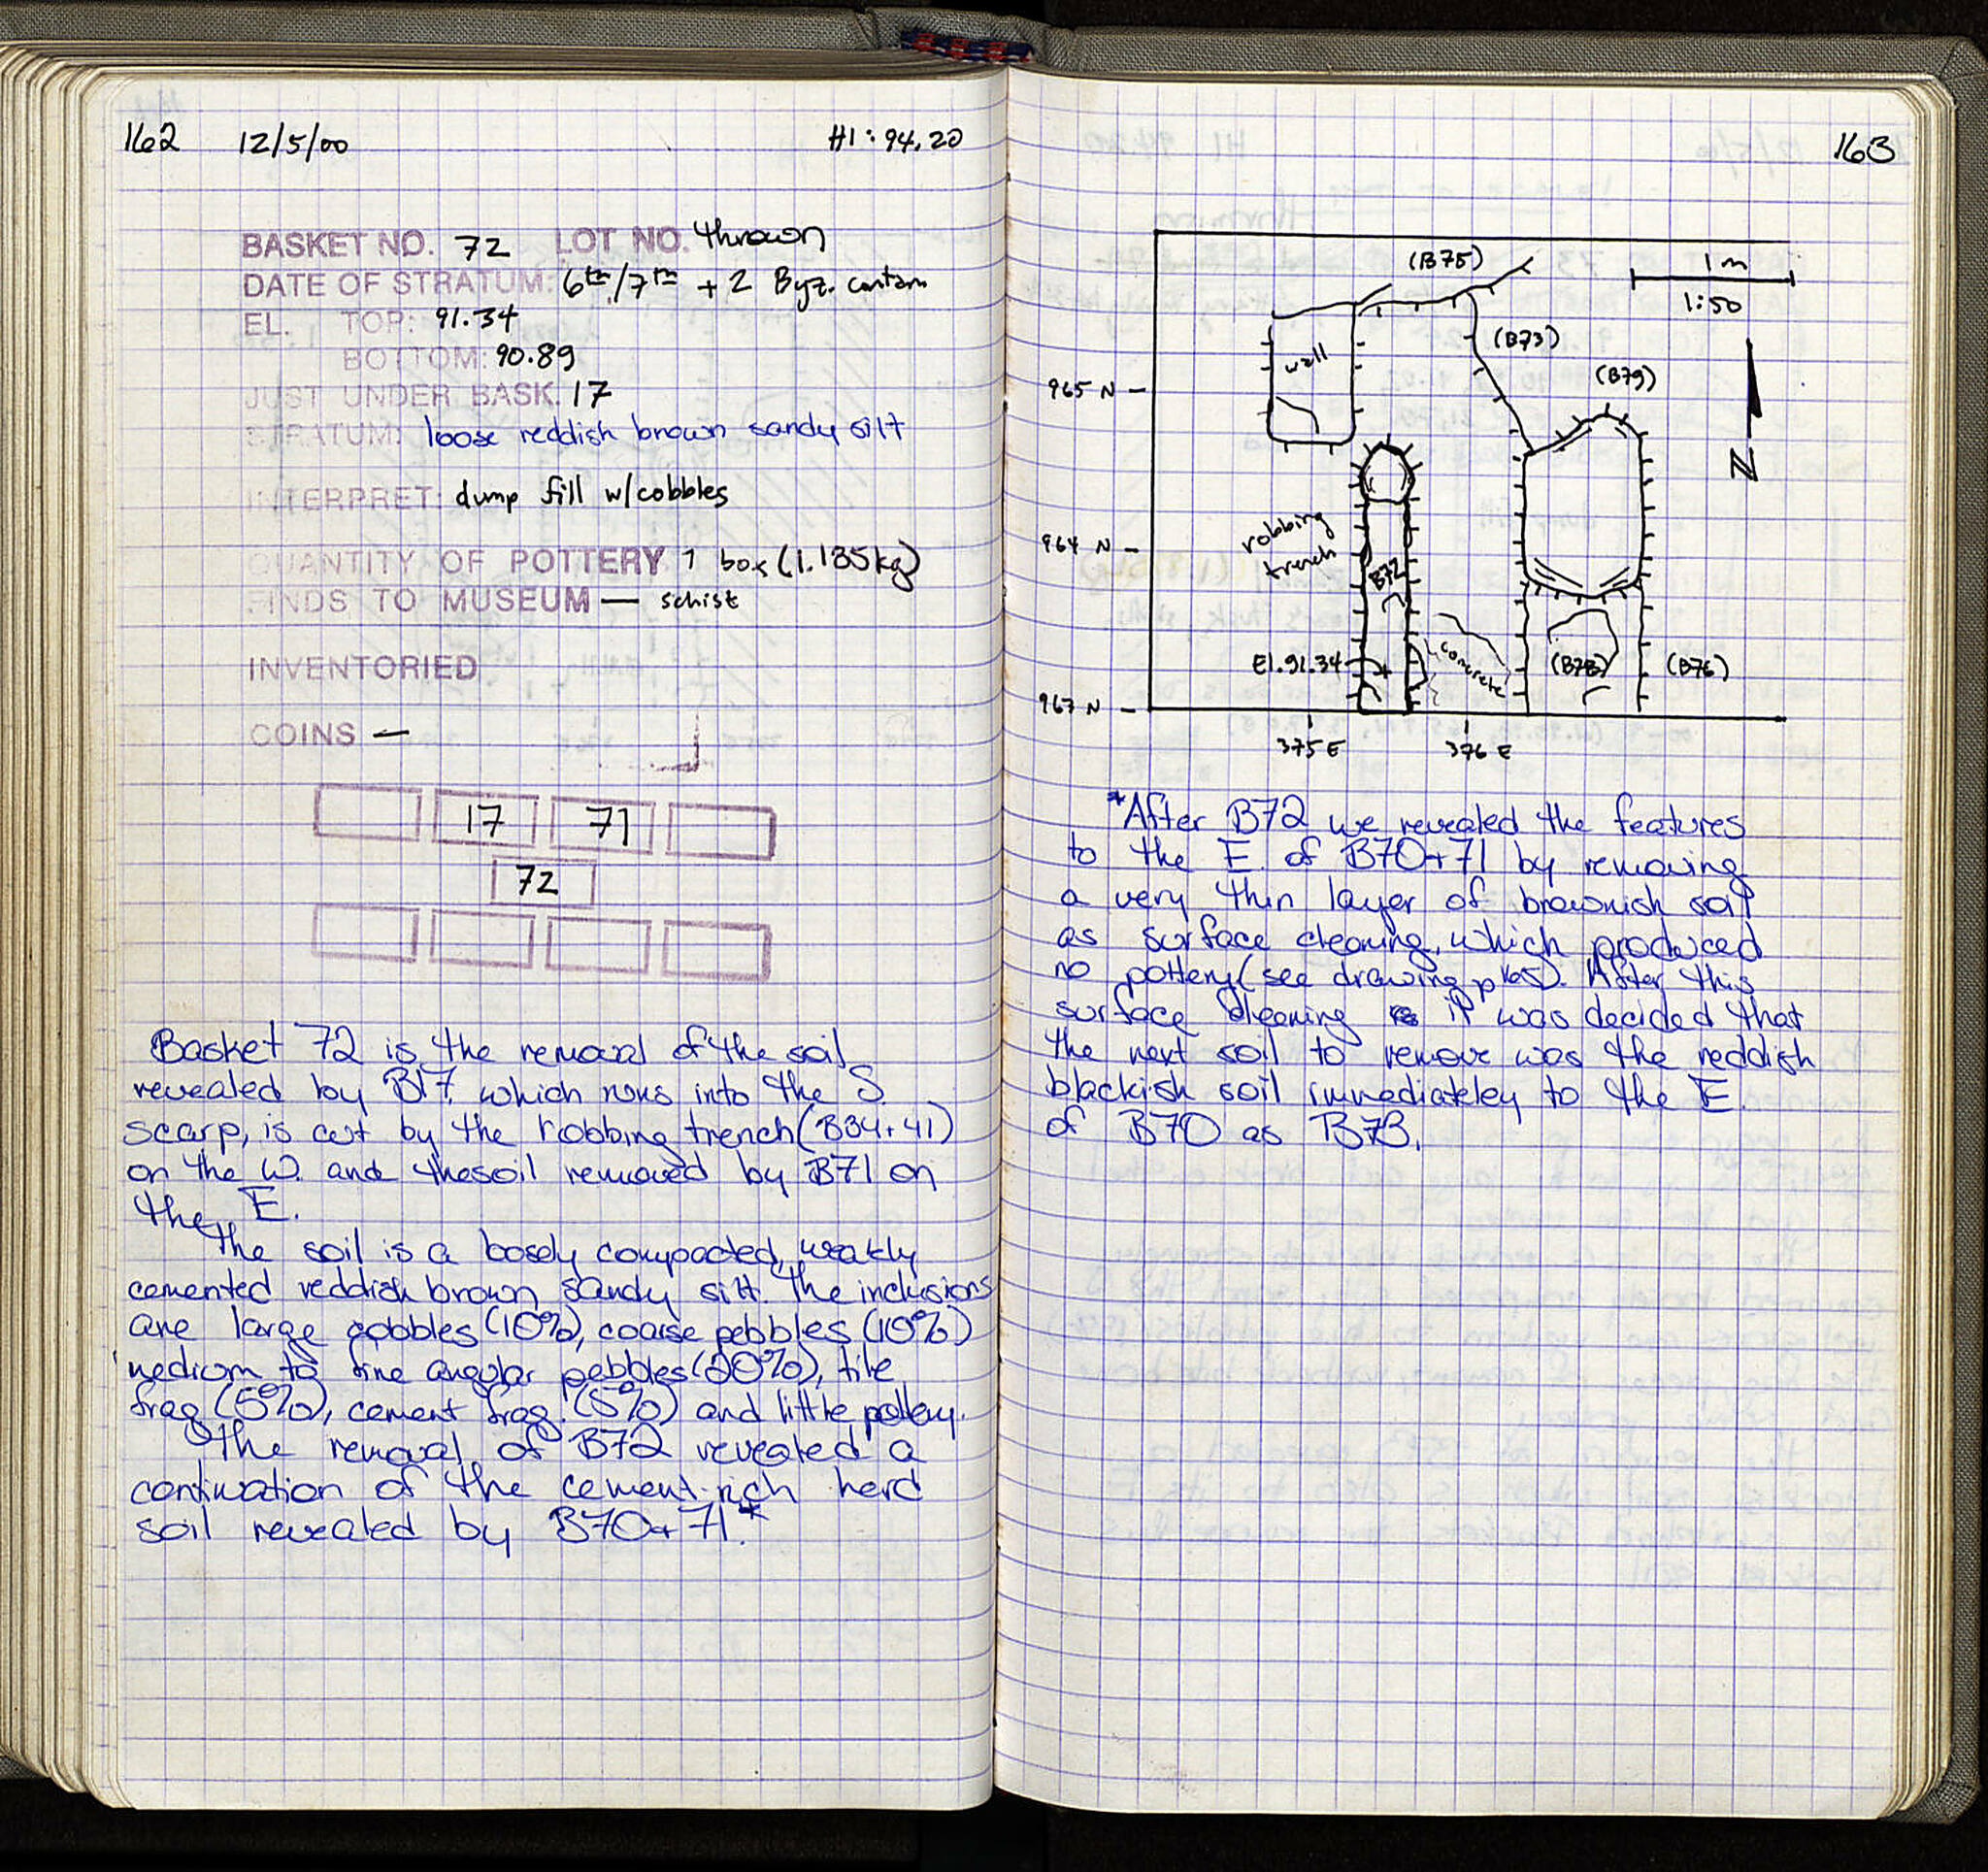 162 12/5/00 H1: 94.20
BASKET NO. 72 LOT NO. thrown
DATE OF STRATUM: 6th/7th + 2 Byz. contam
EL. TOP: 91.34
BOTTOM: 90.89
JUST UNDER BASK. 17
STRATUM: loose reddish brown sandy silt
INTERPRET: dump fill w/cobbles
QUANTITY OF POTTERY 1 box (1.135kg)
FINDS TO MUSEUM — schist
INVENTORIED
COINS —
17 71
72
Basket 72 is the removal of the soil
revealed by B17, which runs into the S.
scarp, is cut by the robbing trench (B34+41)
on the W. and the soil removed by B71 on
the E.
The soil is a loosely compacted, weakly
cemented reddish brown sandy silt. The inclusions
are large cobbles (10%), coarse pebbles (10%)
medium to fine angular pebbles (20%), tile
frag (5%), cement frag. (5%) and little pottery.
The removal of B72 revealed a
continuation of the cement-rich hard
soil revealed by B70+71.*
163
(B75)
1 m
1:50
(B73)
wall
(B79)
965 N
N
964 N
robbing
trench
B72
El. 91.34
concrete
(B78)
(B76)
967 N
375 E 376 E
*After B72 we revealed the features
to the E. of B70+71 by removing
a very thin layer of brownish soil
as surface cleaning, which produced
no pottery (see drawing p. 165). After this
surface cleaning it was decided that
the next soil to remove was the reddish
blackish soil immediateley to the E.
of B70 as B73.